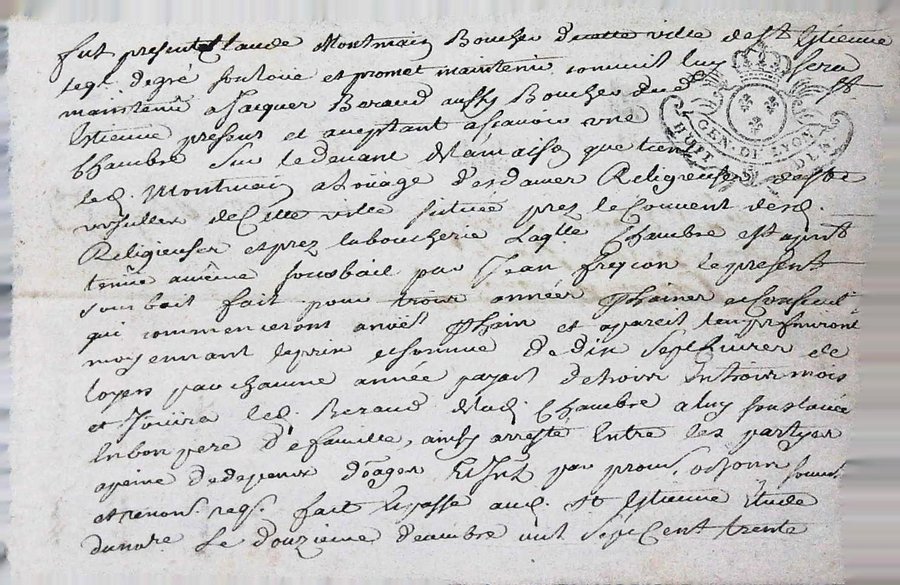 fut present Claude Montmain Boucher de cette ville de St Etienne
leql. de gré soulouë et promet maintenir comme il luy sera
maintenu a Jacques Beraud aussy Boucher dud. St
Etienne present et aceptant ascavoir une
Chambre sur le devant de la maison que tient
led. Montmain a loüage des dames Religieuses de Ste
ursulles de Cette ville située prez le Couvent desd.
Religieuses et prez la boucherie Laqlle Chambre est apnt
tenue a même sousbail par Jean freycon le present
sous bail fait pour trois années
qui commenceront a noël et a pareil temps finiront
moyennant le prix et somme de dix sept livres de
loyer par chacune année payable de trois en trois mois
et Joüira led. Beraud de lad. Chambre a luy soulouée
en bon pere de famille, ainsy arresté Entre les partyes
a peine de depens domages par prom. soumis.
et renons. fait et passé aud. St Etienne Etude
du nore. Le douzieme decembre mil sept Cent trente
GEN. DE LYON
HUIT D.